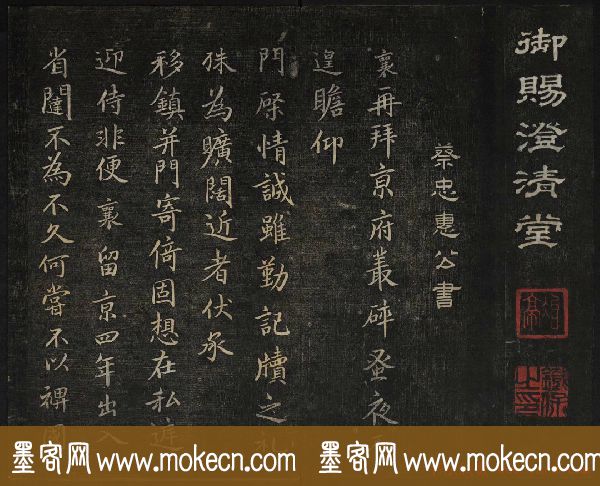 御賜澄清堂
蔡忠惠公書
襄再拜京府叢碎蚤夜
遑瞻仰
門屏情誠雖勤記牘之
殊為曠闊近者伏承
移鎮并門寄倚固想在私
迎侍非便襄留京四年出入
省闥不為不久何嘗不以裨
墨客网 www.mokecn.com 墨客网 www.mokecn.com